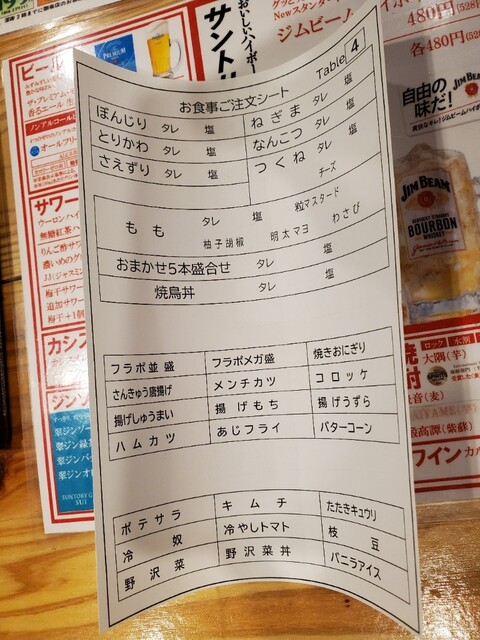 お食事ご注文シート
Table 4
ぼんじり タレ 塩
ねぎま タレ 塩
とりかわ タレ 塩
なんこつ タレ 塩
さえずり タレ 塩
つくね タレ 塩
チーズ
もも タレ 塩 粒マスタード
柚子胡椒 明太マヨ わさび
おまかせ5本盛合せ タレ 塩
焼鳥丼 タレ 塩
フラポ並盛 フラポメガ盛 焼きおにぎり
さんきゅう唐揚げ メンチカツ コロッケ
揚げしゅうまい 揚げもち 揚げうずら
ハムカツ あじフライ バターコーン
ポテサラ キムチ たたきキュウリ
冷奴 冷やしトマト 枝豆
野沢菜 野沢菜丼 バニラアイス
ビール
PREMIUM
ノンアルコール
オールフリー
サワー
ウーロンハイ
無糖紅茶
りんご酢サワー
濃いめの
JJ(ジャスミン
梅干サワー
追加サワー
梅干+1個
カシス
ジン
翠ジンソーダ
翠ジン緑茶
翠ジンバ
翠ジンオ
SUNTORY G
SUI
おいしいハイボール
サントリー
ジムビーム
480円(528
各480円(528
自由の
味だ!
JIM BEAM
JIM BEAM
BOURBON
WHISKEY
ロック 水割
大隅(芋)
(麦)
(紫蘇)
ワイン